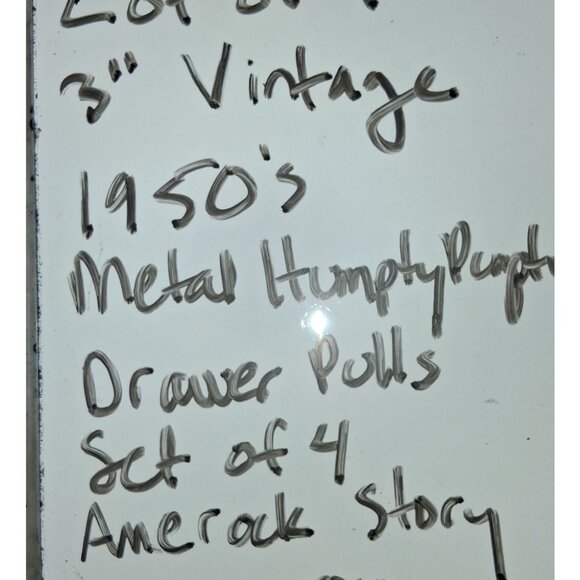 3" Vintage
1950's
Metal Humpty Dumpty
Drawer Pulls
Set of 4
Amerock Story